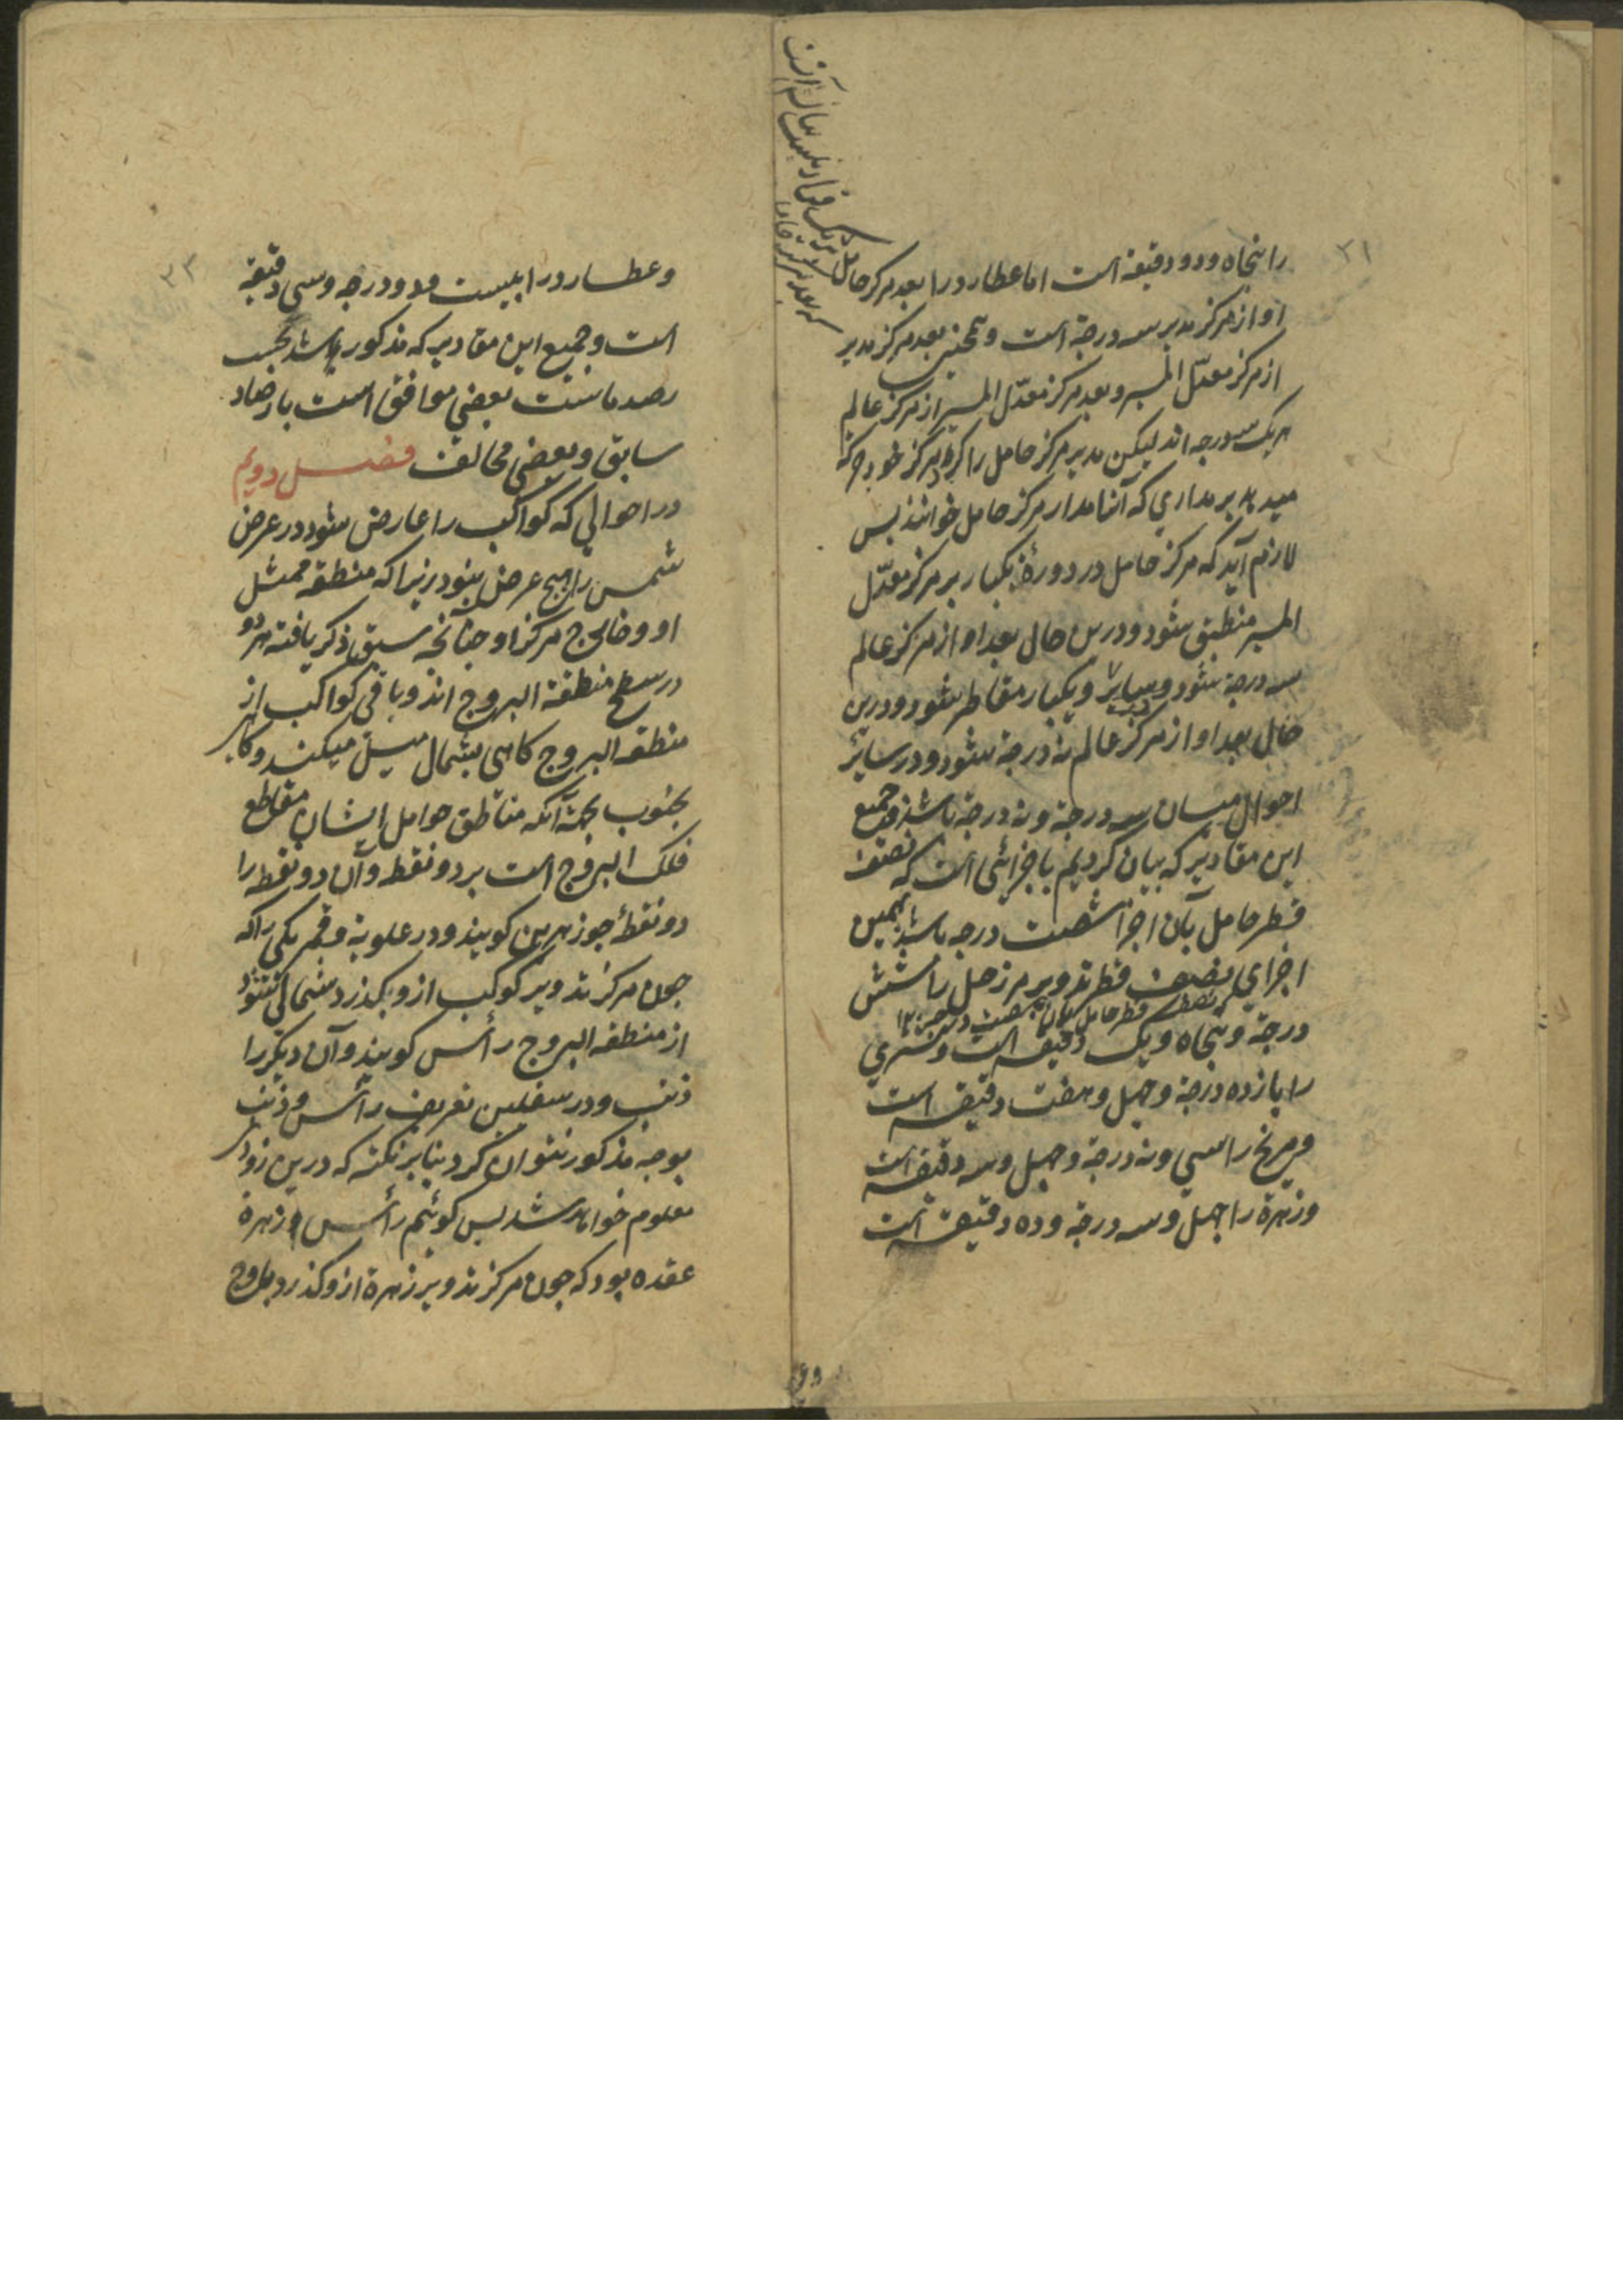 را پنجاه و دو دقیقه است اما عطارد را بعد مرکز حامل
او از مرکز مدیر سه درجه است و همچنین بعد مرکز مدیر
از مرکز معدّل المسیر و بعد مرکز معدّل المسیر از مرکز عالم
هر یک سه درجه اند لیکن مدیر مرکز حامل را کرد مرکز خود حرکة
میدهد بر مداری که آنرا مدار مرکز حامل خوانند پس
لازم آید که مرکز حامل در دورهٔ یکبار بر مرکز معدّل
المسیر منطبق شود و درین حال بعد او از مرکز عالم
سه درجه شود و یکبار مقاطر شود و درین
حال بعد او از مرکز عالم نه درجه شود و در سایر
احوال میان سه درجه و نه درجه باشد و جمیع
این مقادیر که بیان کردیم باجزائی است که نصف
قطر حامل بآن اجزا شصت درجه باشد بهمین
اجزای نصف قطر تدویر مر زحل را شش
درجه و پنجاه و یک دقیقه است و مشتری
را یازده درجه و چهل و هفت دقیقه است
و مریخ را سی و نه درجه و چهل و سه دقیقه است
و زهرة را چهل و سه درجه و ده دقیقه است
۳۱
و عطارد را بیست و دو درجه و سی دقیقه
است و جمیع این مقادیر که مذکور باشد بحسب
رصد ماست بعضی موافق است بارصاد
سابق و بعضی مخالف فصل دویم
در احوالی که کواکب را عارض شود در عرض
شمس را هیچ عرض نبود زیرا که منطقه ممثل
او و خارج مرکز او چنانچه سبق ذکر یافته هر دو
در سطح منطقة البروج اند و باقی کواکب از
منطقه البروج کاهی بشمال میل میکنند و کاهی
بجنوب بجهة آنکه مناطق حوامل ایشان مقاطع
فلک البروج است بر دو نقطه و آن دو نقطه را
دو نقطهٔ جوزهرین کویند و در علویه و قمر یکی را که
چون مرکز تدویر کوکب ازو بکذرد شمالی شود
از منطقه البروج رأس کویند و آن دیکر را
ذنب و در سفلیین تعریف رأس و ذنب
بوجه مذکور نتوان کرد بنابر نکته که درین زودی
معلوم خواهد شد پس کوئیم رأس زهرة
عقده بود که چون مرکز تدویر زهرة ازو کذرد باوج
۳۲